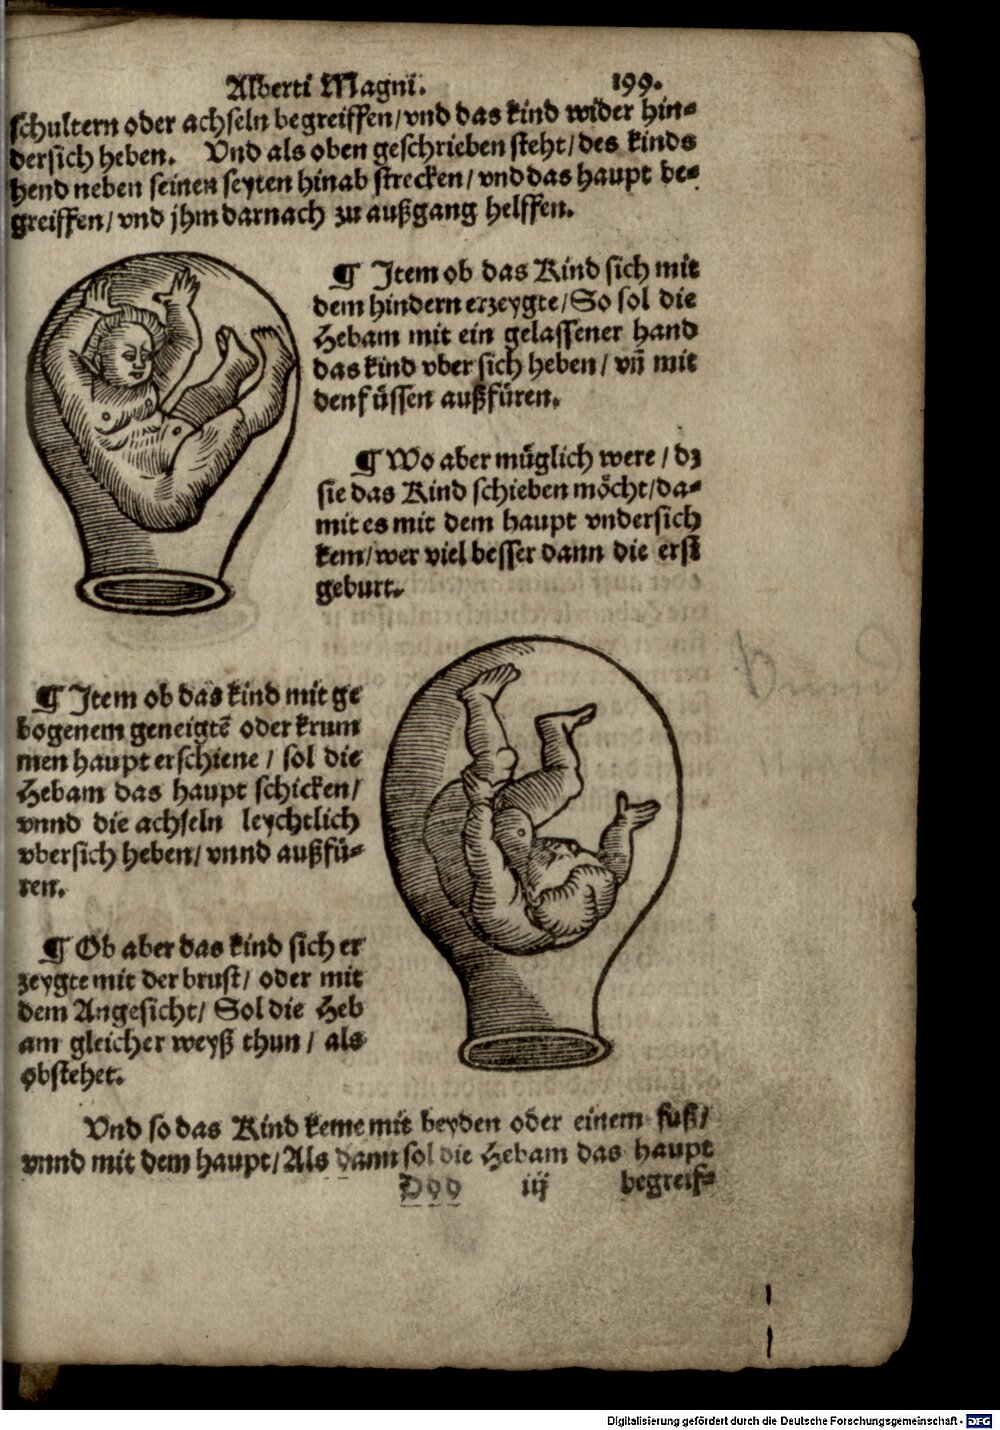 Alberti Magni. 199.
schultern oder achseln begreiffen/vnd das kind wider hin=
dersich heben. Vnd als oben geschrieben steht/des kinds
hend neben seinen seyten hinab strecken/vnd das haupt be=
greiffen/vnd jhm darnach zu außgang helffen.
¶ Item ob das Kind sich mit
dem hindern erzeygte/So sol die
Hebam mit ein gelassener hand
das kind vber sich heben/vñ mit
den füssen außfüren.
¶ Wo aber müglich were/dz
sie das Kind schieben möcht/da=
mit es mit dem haupt vndersich
kem/wer viel besser dann die erst
geburt.
¶ Item ob das kind mit ge
bogenem geneigtē oder krum
men haupt erschiene/sol die
Hebam das haupt schicken/
vnnd die achseln leychtlich
vbersich heben/vnnd außfü=
ren.
¶ Ob aber das kind sich er
zeygte mit der brust/oder mit
dem Angesicht/Sol die Heb
am gleicher weyß thun/als
obstehet.
Vnd so das Kind keme mit beyden oder einem fuß/
vnnd mit dem haupt/Als dann sol die Hebam das haupt
Ddd iij begreif=
Digitalisierung gefördert durch die Deutsche Forschungsgemeinschaft - DFG